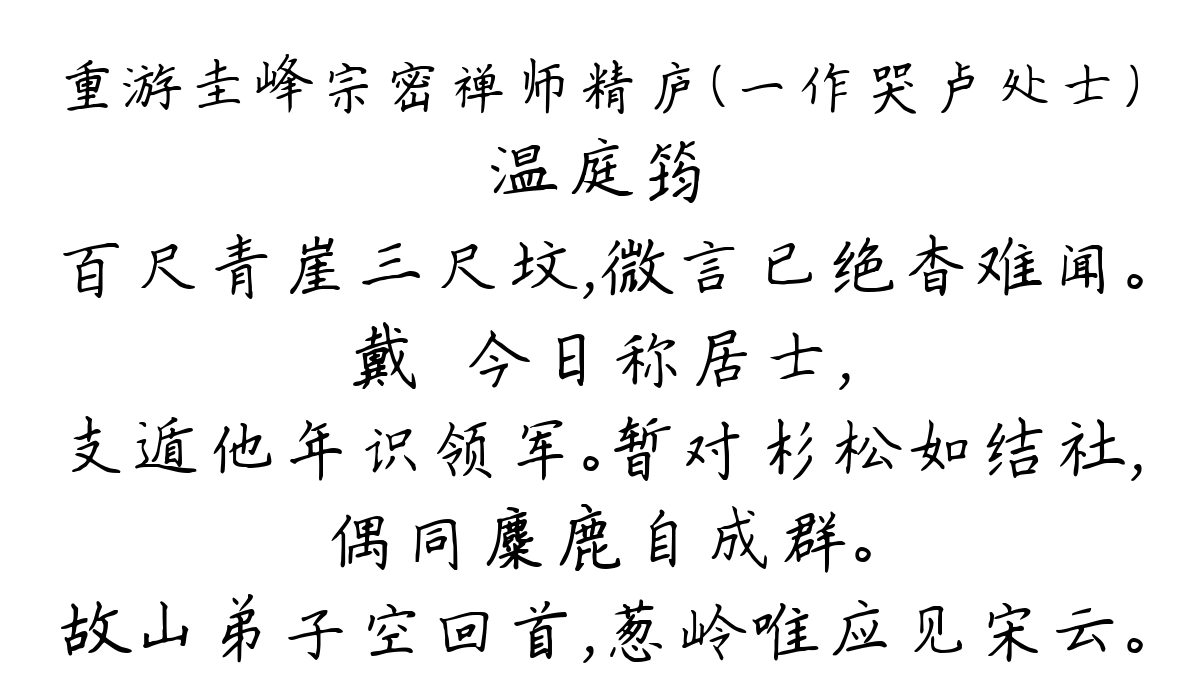 重游圭峰宗密禅师精庐(一作哭卢处士)
温庭筠
百尺青崖三尺坟,微言已绝杳难闻。
戴 今日称居士,
支遁他年识领军。暂对杉松如结社,
偶同麋鹿自成群。
故山弟子空回首,葱岭唯应见宋云。